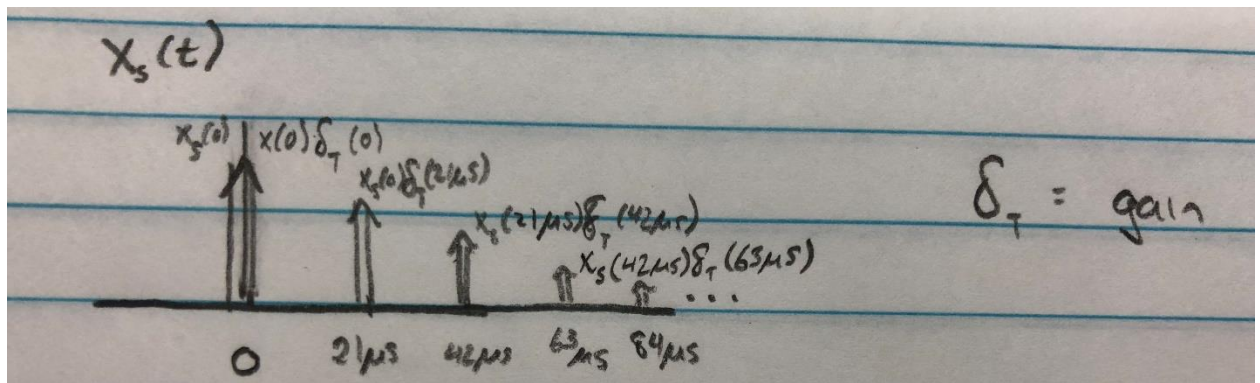 X_s(t)
x_s(0) x(0) δ_T(0)
x_s(0)δ_T(21μs)
x_s(21μs)δ_T(42μs)
x_s(42μs)δ_T(63μs)
δ_T = gain
0 21μs 42μs 63μs 84μs ...